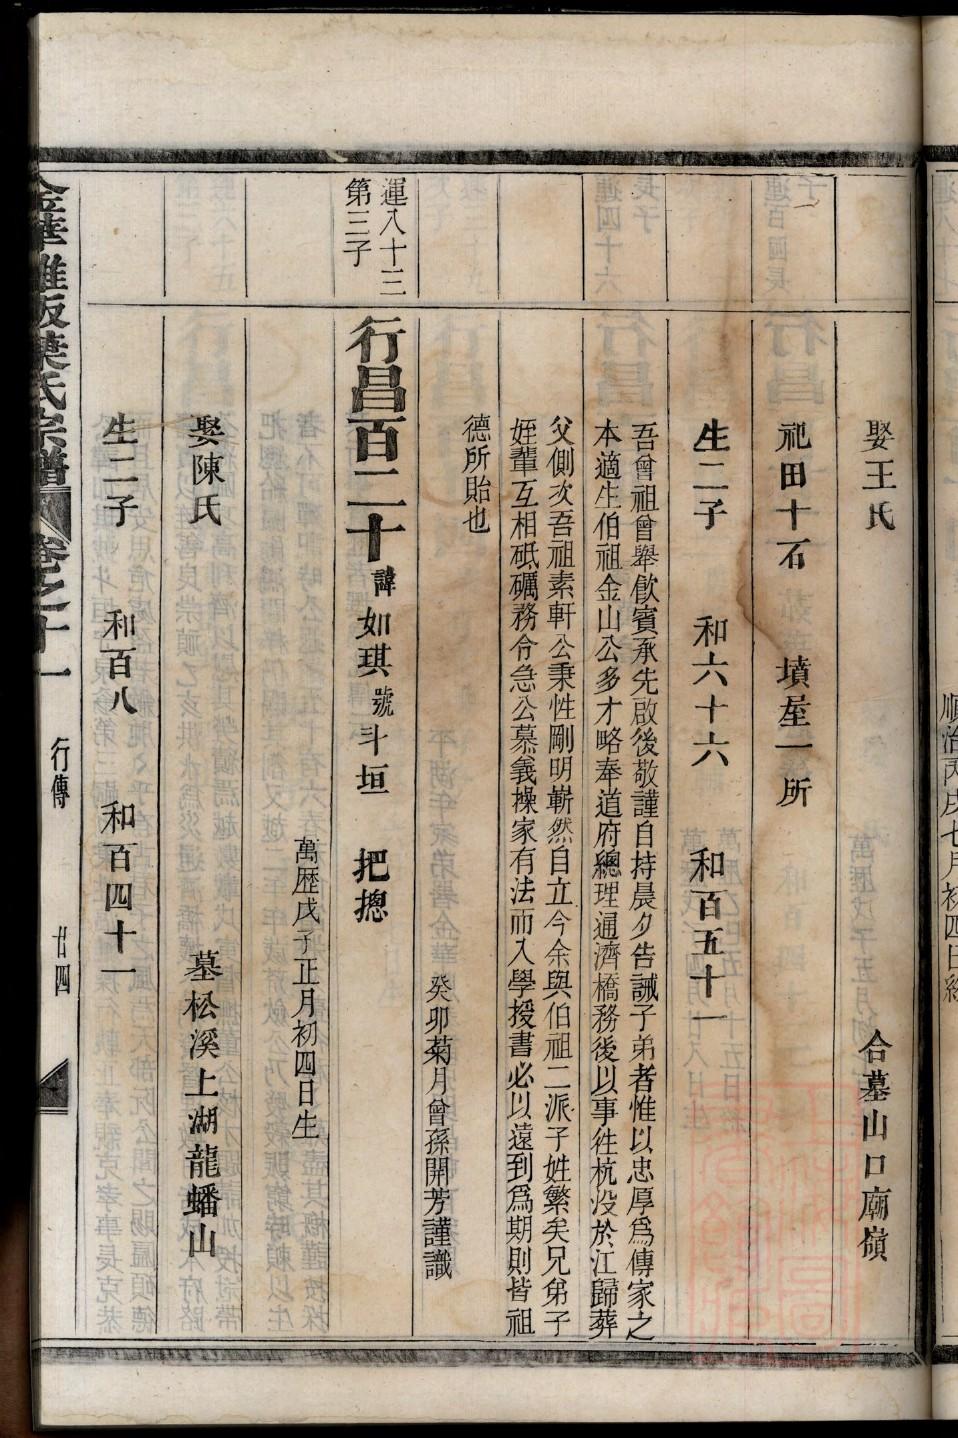 娶王氏 合墓山口廟嶺
祀田十石 墳屋一所
生二子 和六十六 和百五十一
吾曾祖曾舉飲賓承先啟後敬謹自持晨夕告誡子弟者惟以忠厚爲傳家之
本適生伯祖金山公多才略奉道府總理通濟橋務後以事徃杭沒於江歸葬
父側次吾祖素軒公秉性剛明嶄然自立今余與伯祖二派子姓繁矣兄弟子
姪輩互相砥礪務令急公慕義操家有法而入學授書必以遠到爲期則皆祖
德所貽也
癸卯菊月曾孫開芳謹識
運八十三
第三子
行昌百二十諱如琪號斗垣 把摠
萬歷戊子正月初四日生
娶陳氏 墓松溪上湖龍蟠山
生二子 和百八 和百四十一
卷之十一 行傳 廿四